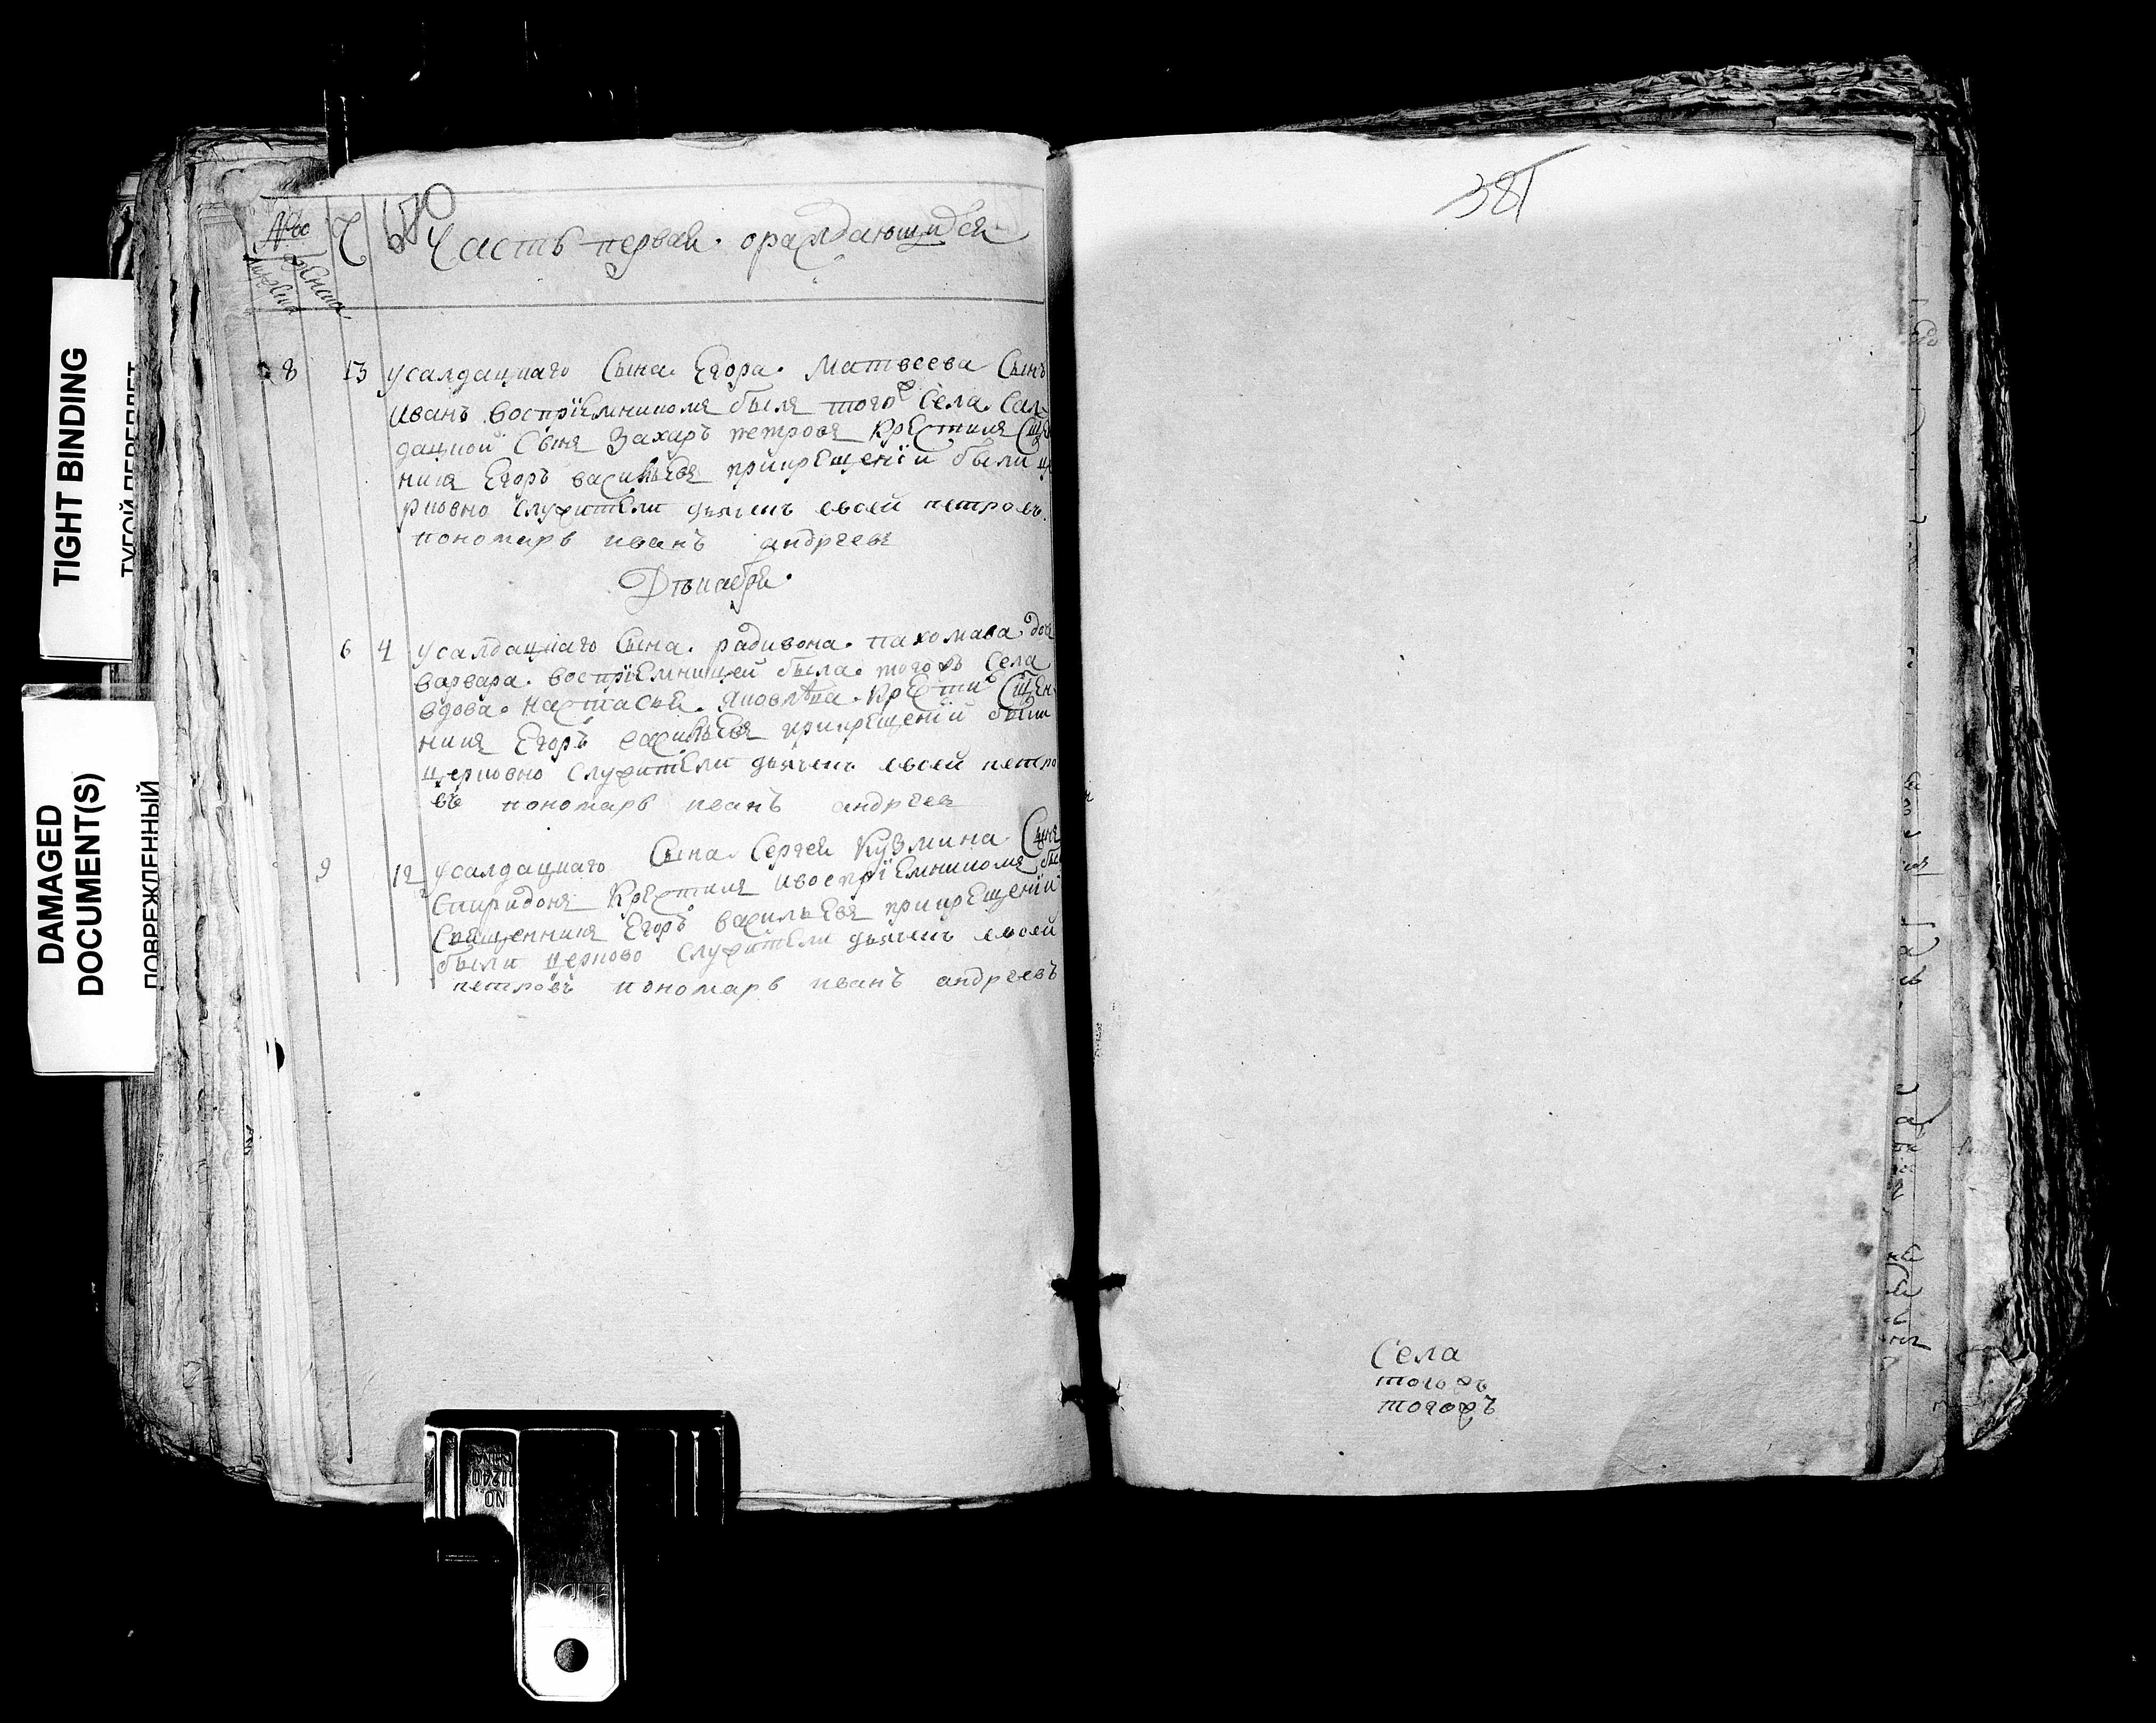 TIGHT BINDING
DAMAGED
DOCUMENT(S)
ПОВРЕЖДЕННЫЙ
№ 7 650 Часть первая. ораждающихся
8 13 усалдацкаго Сына. Егора. Матвеева Сынъ
Иванъ воспрїемникомъ былъ того ж Села. Сал
дацкой Сынъ Захаръ петровъ крестилъ Сще
никъ Егоръ васильевъ прикрещенїи были це
рковно служители дьячекъ евсей петровъ.
пономарь иванъ андреевъ
Дѣкабря.
6 4 усалдацкаго Сына. радивона. пахомава доч
варвара. воспрїемницей была. тогожъ Села
вдова. настасья. Яковлѣва. крести Сщен
никъ Егоръ васильевъ прикрещенїи были
церковно служители дьячекъ евсей петро
въ пономарь иванъ андреев
9 12 усалдацкаго Сына. Сергея Кузмина. Сынъ
Спиридонъ Крестилъ ивоспрїемникомъ был
Священникъ Егоръ васильевъ прикрещенїи
были церково служители дьячекъ евсей
петровъ пономарь иванъ андреевъ
381
Села
тогожъ
тогожъ